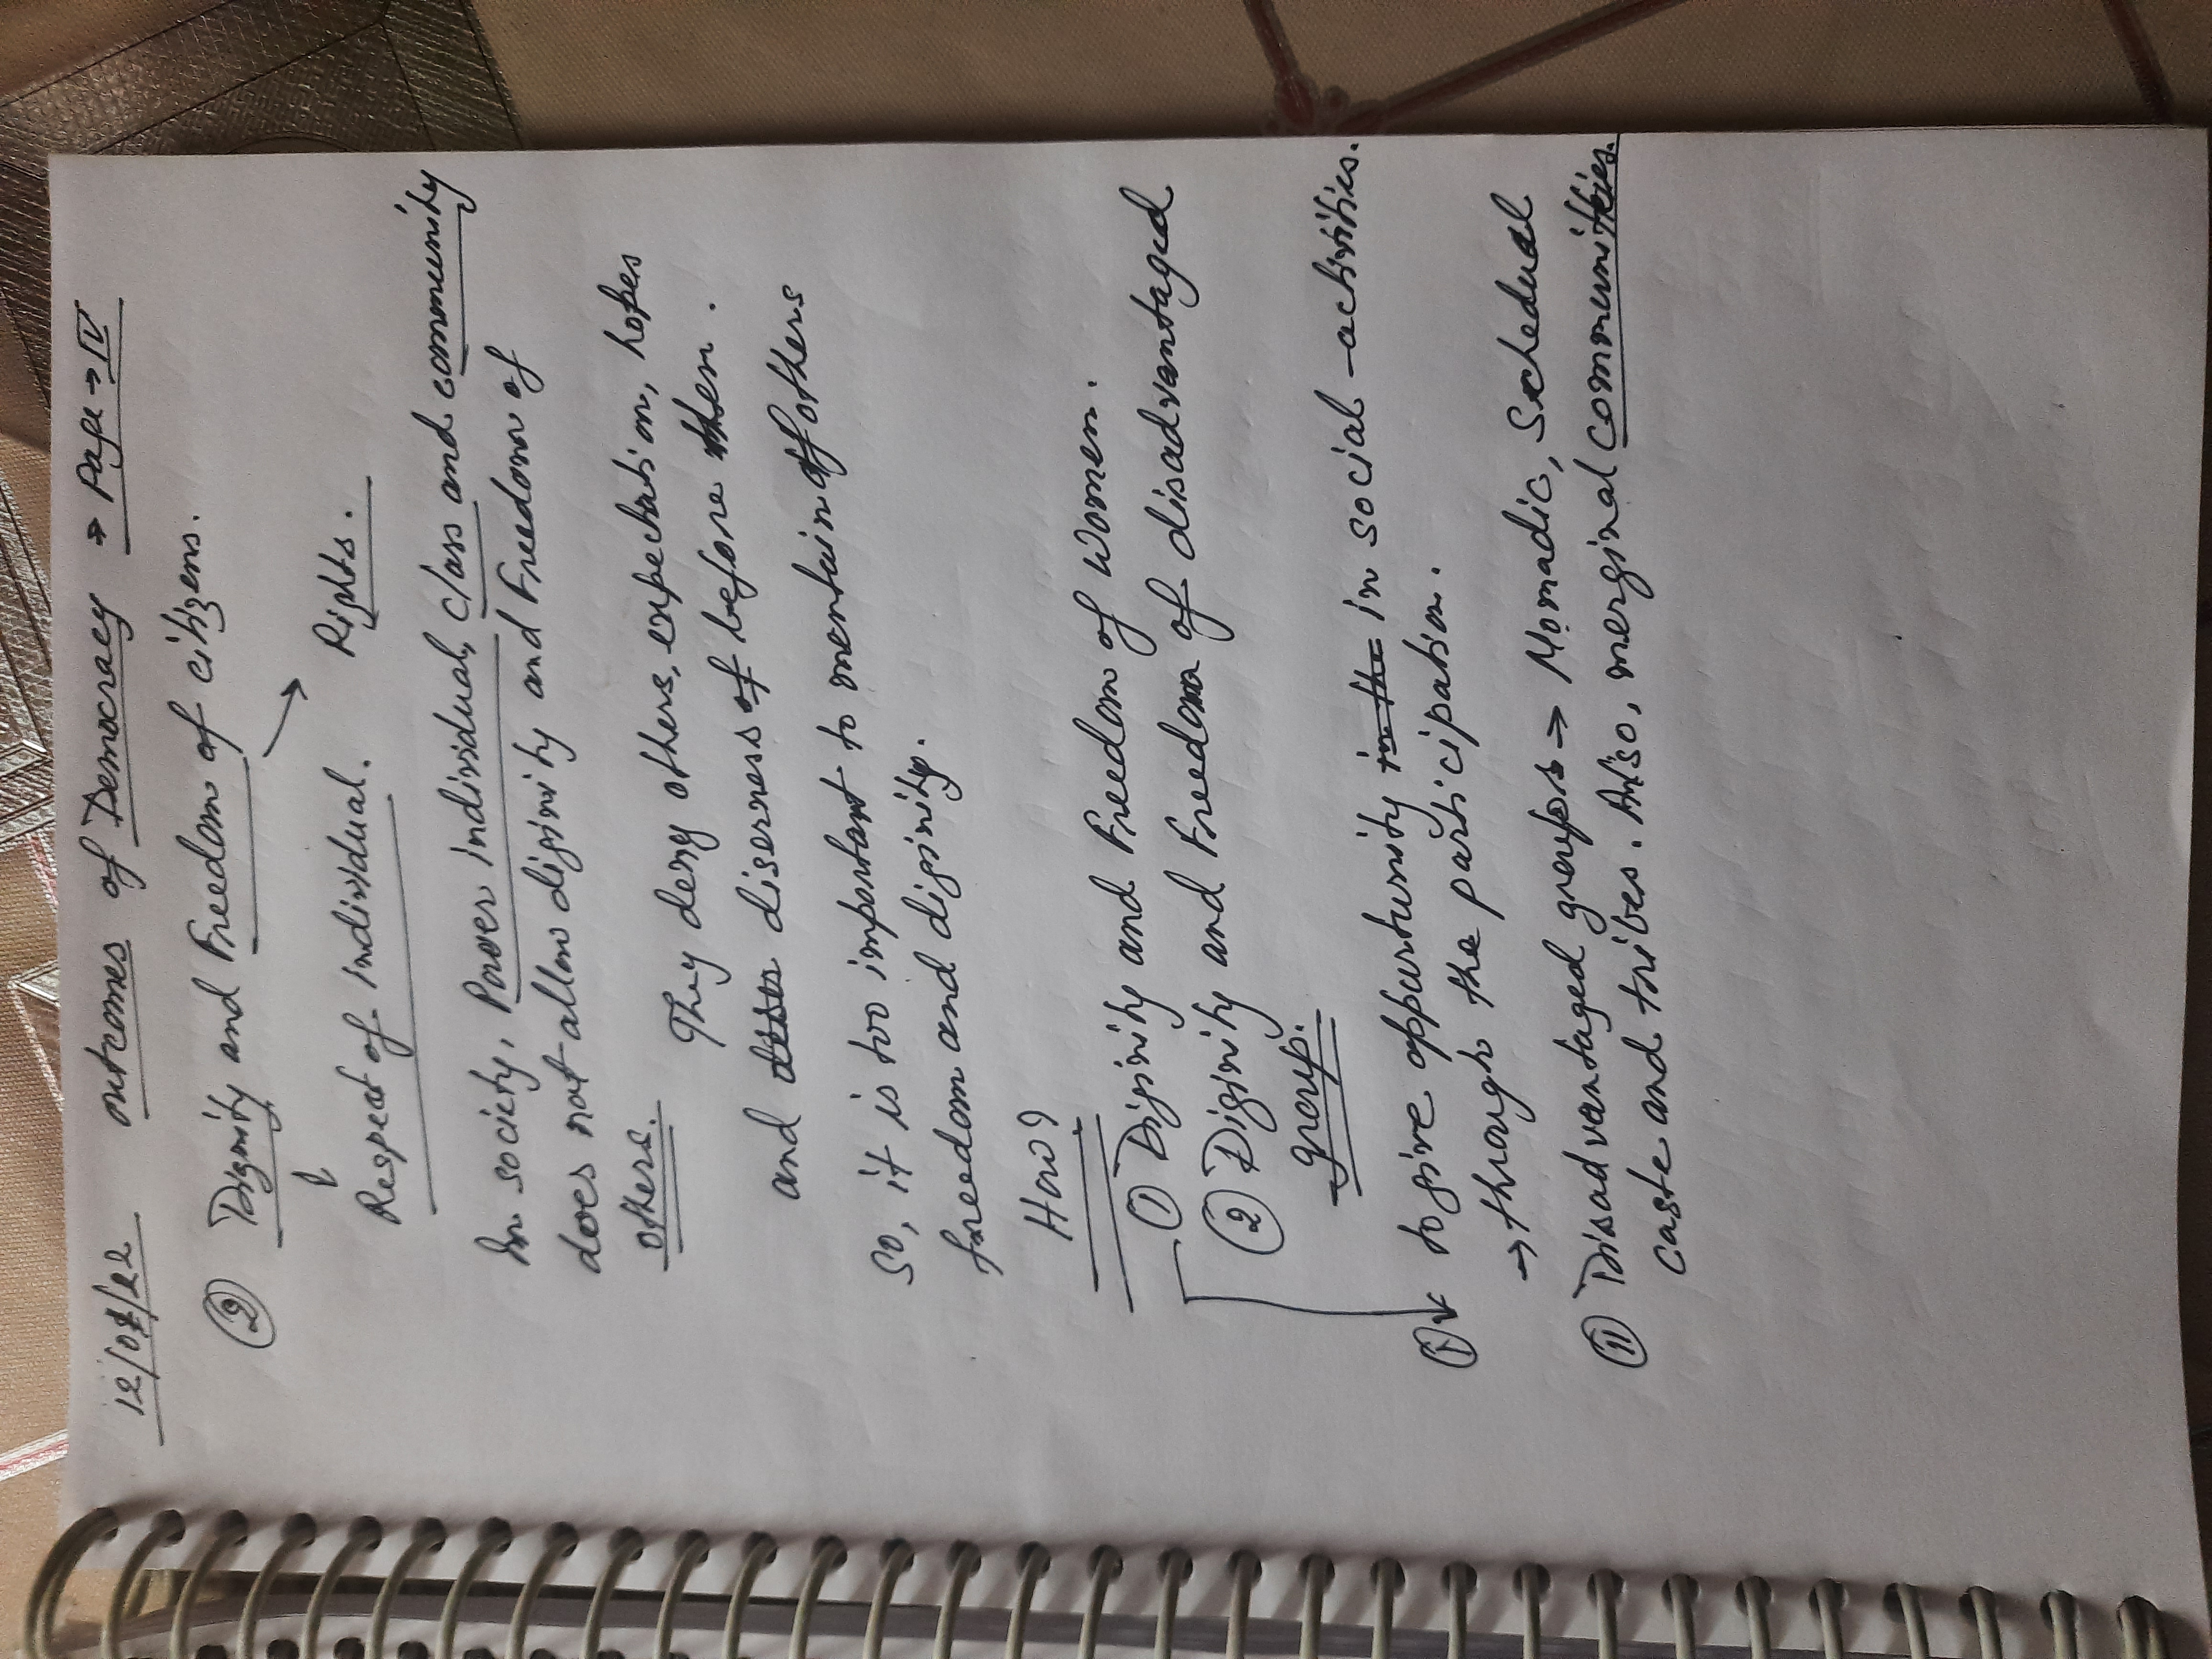 12/07/22 outcomes of Democracy → Page → IV
② Dignity and Freedom of citizens.
Respect of individual. Rights.
In society, Power individual, class and community
does not allow diginity and Freedom of
others.
They deny others, expectation, hopes
and diserness of before them.
So, it is too important to mentain of others
freedom and diginity.
How?
① Diginity and Freedom of women.
② Diginity and Freedom of disadvantaged
group.
① to give oppurtunity in the in social -activities.
→ through the participation.
⑪ Disadvantaged groups → Nomadic, Schedual
caste and tribes. Also, merginal communities.